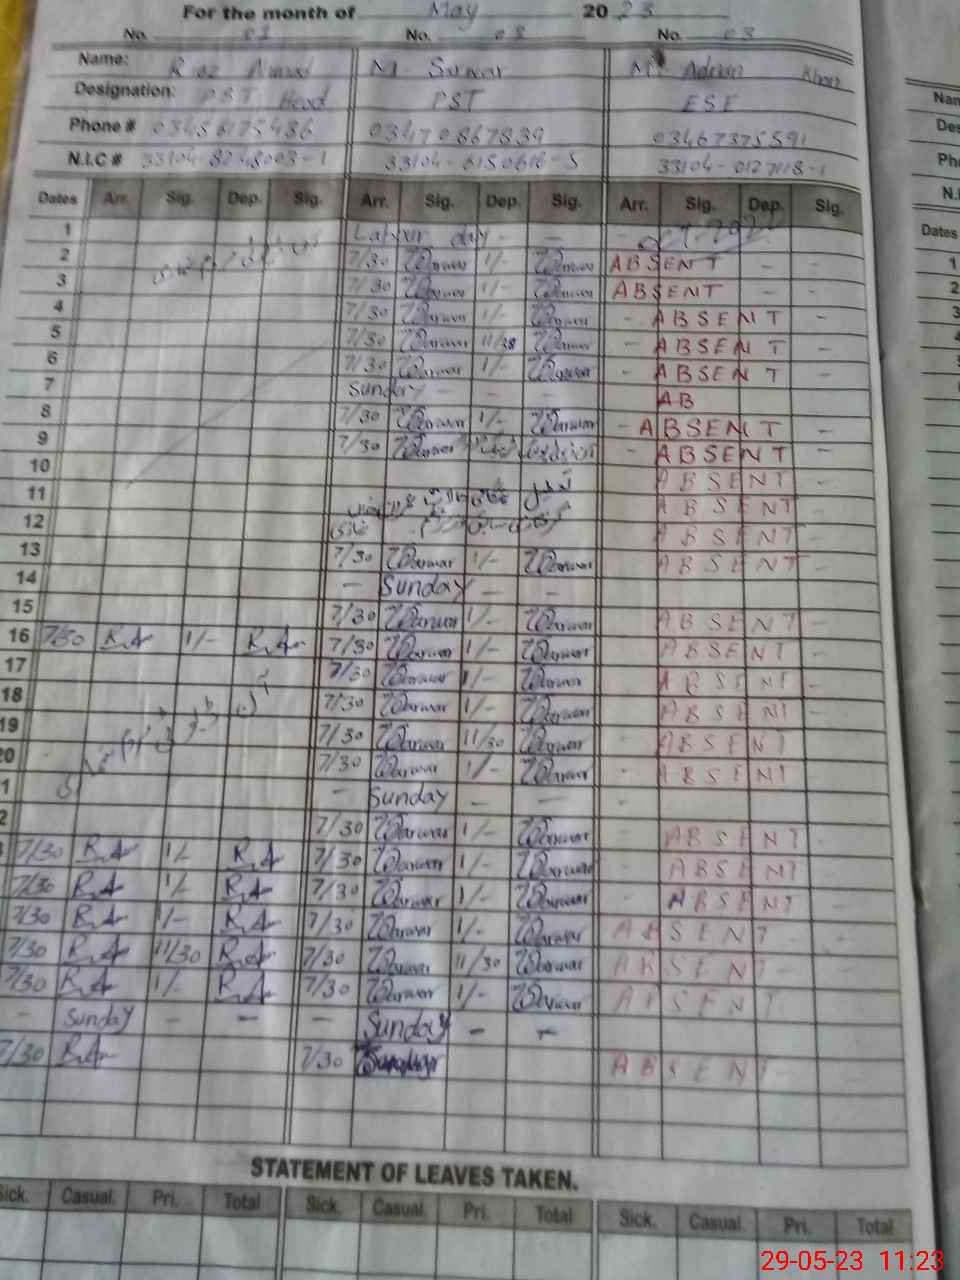 For the month of May 20 23
No. No. 02 No. 03
Name: Riaz Ahmad M. Sarwar M. Adnan Khan
Designation: PST Head PST ESE
Phone # 03470867839 03467375591
N.I.C # 33104-8248003-1 33104-6180616-5 33104-0127118-1
Dates Arr. Sig. Dep. Sig. Arr. Sig. Dep. Sig. Arr. Sig. Dep. Sig.
1 Labour day - -
2 7/30 Sarwar 1/- Sarwar ABSENT - -
3 7/30 Sarwar 1/- Sarwar ABSENT - -
4 7/30 Sarwar 1/- Sarwar - ABSENT -
5 7/30 Sarwar 11/30 Sarwar - ABSENT -
6 7/30 Sarwar 1/- Sarwar - ABSENT -
7 Sunday - - - AB
8 7/30 Sarwar 1/- Sarwar - ABSENT -
9 7/30 Sarwar - ABSENT -
10 ABSENT
11 ABSENT
12 ABSENT
13 7/30 Sarwar 1/- Sarwar ABSENT
14 - Sunday - -
15 7/30 Sarwar 1/- Sarwar ABSENT -
16 7/30 R.A 1/- R.A 7/30 Sarwar 1/- Sarwar ABSENT -
17 7/30 Sarwar 1/- Sarwar - ABSENT -
18 7/30 Sarwar 1/- Sarwar - ABSENT -
19 7/30 Sarwar 11/30 Sarwar - ABSENT
20 7/30 Sarwar 1/- Sarwar - ABSENT
1 - Sunday - - -
2 7/30 Sarwar 1/- Sarwar - ABSENT -
7/30 R.A 1/- R.A 7/30 Sarwar 1/- Sarwar - ABSENT
7/30 R.A 1/- R.A 7/30 Sarwar 1/- Sarwar - ABSENT -
7/30 R.A 1/- R.A 7/30 Sarwar 1/- Sarwar ABSENT - -
7/30 R.A 11/30 R.A 7/30 Sarwar 11/30 Sarwar ABSENT - -
7/30 R.A 1/- R.A 7/30 Sarwar 1/- Sarwar ABSENT
- Sunday - - - Sunday - -
7/30 R.A 7/30 ABSENT -
STATEMENT OF LEAVES TAKEN.
Sick. Casual. Pri. Total Sick. Casual. Pri. Total Sick. Casual. Pri. Total
Nam
Des
Pho
N.I
Dates
1
2
3
4
29-05-23 11:23